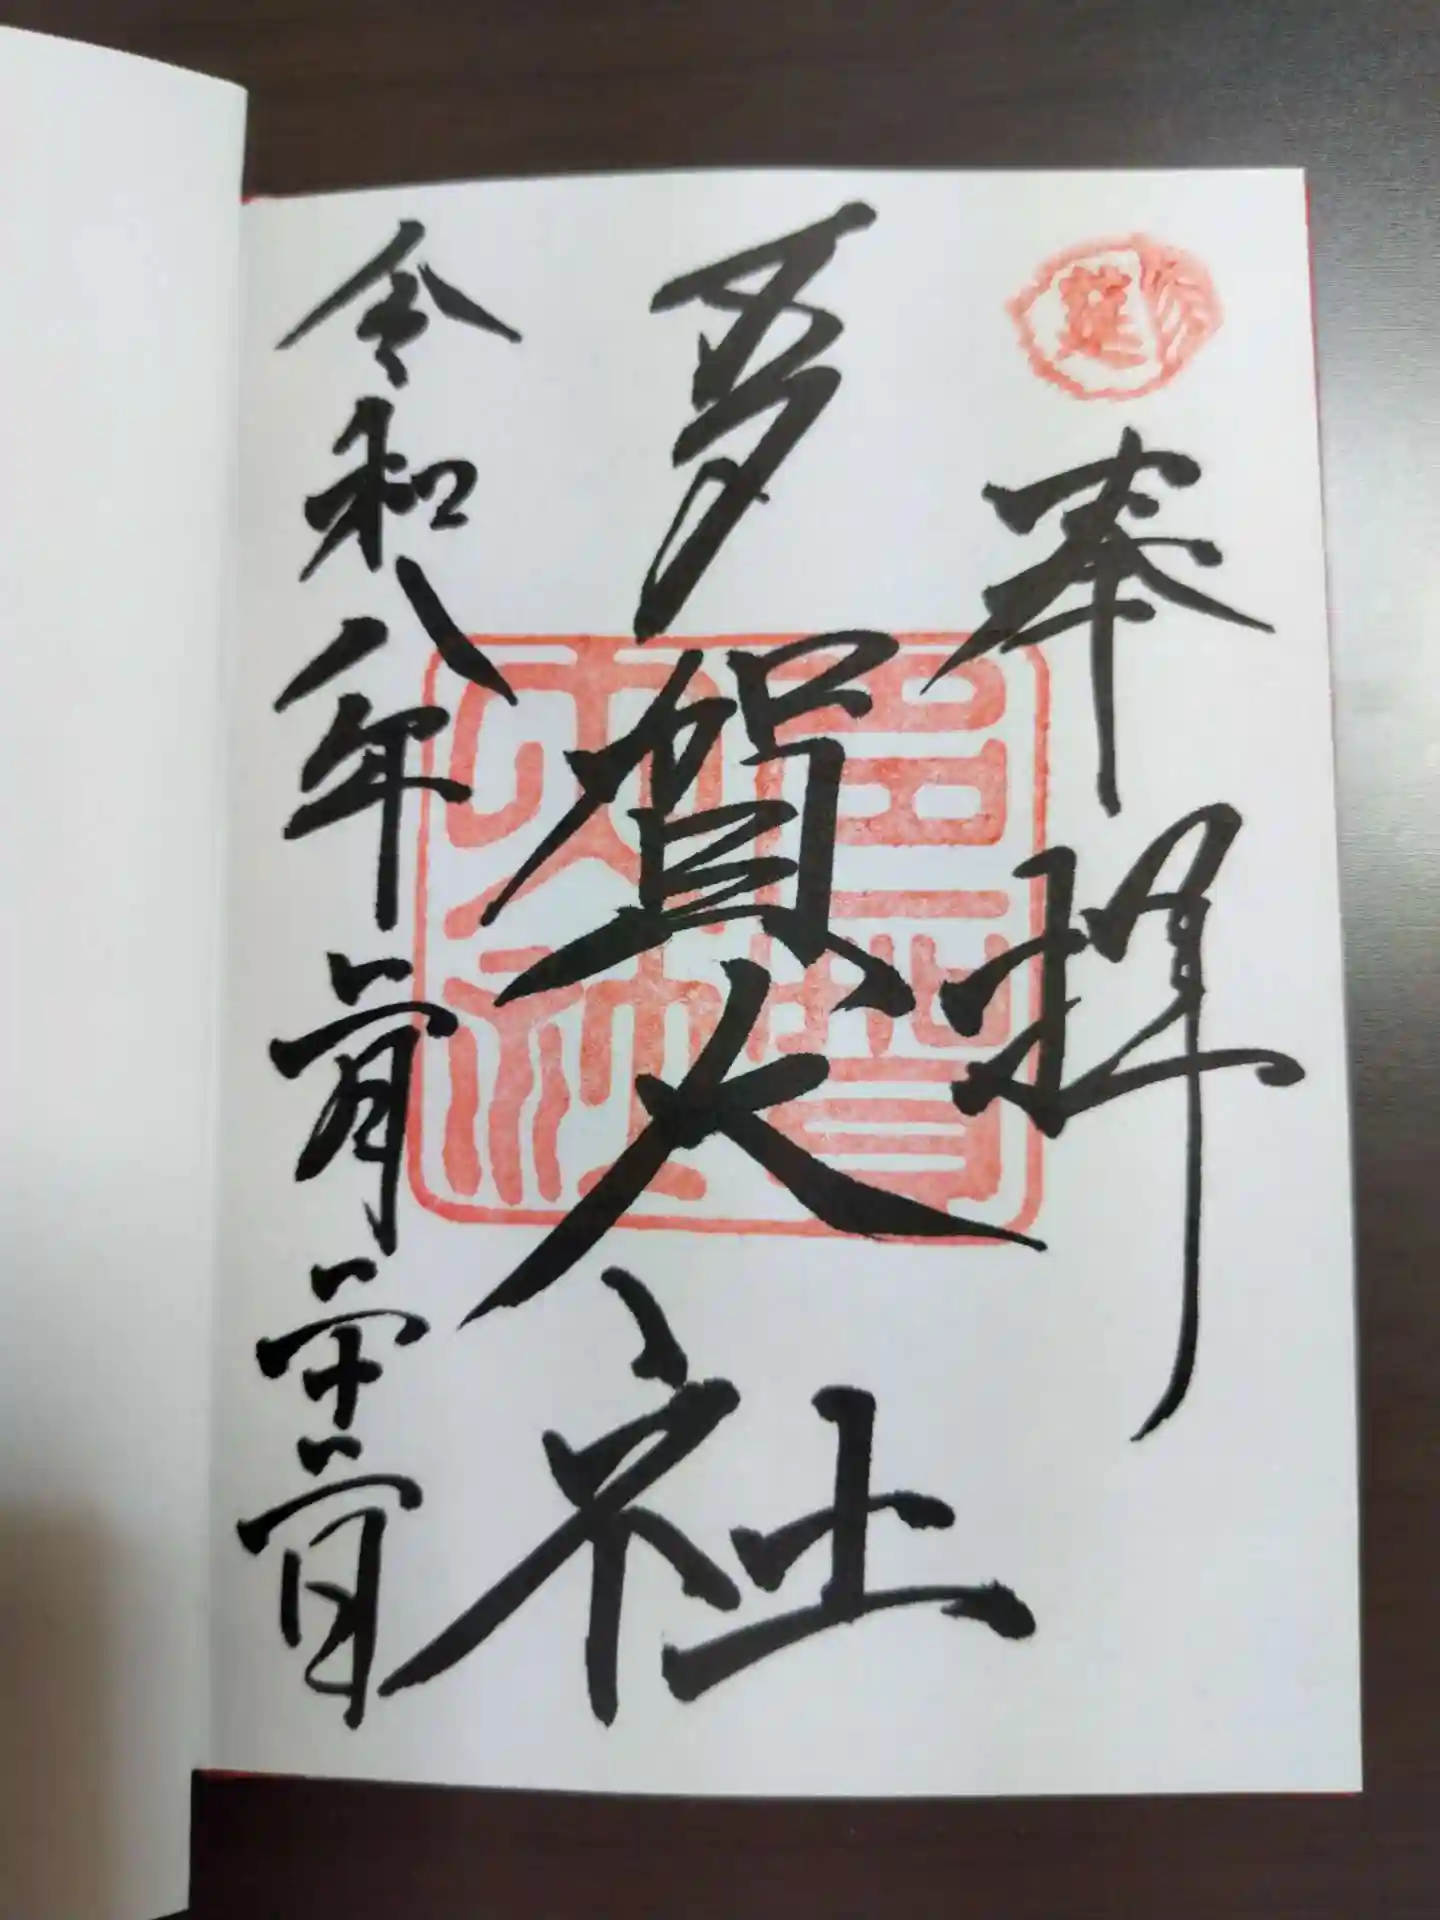 奉拝
多賀大社
令和八年二月二十二日